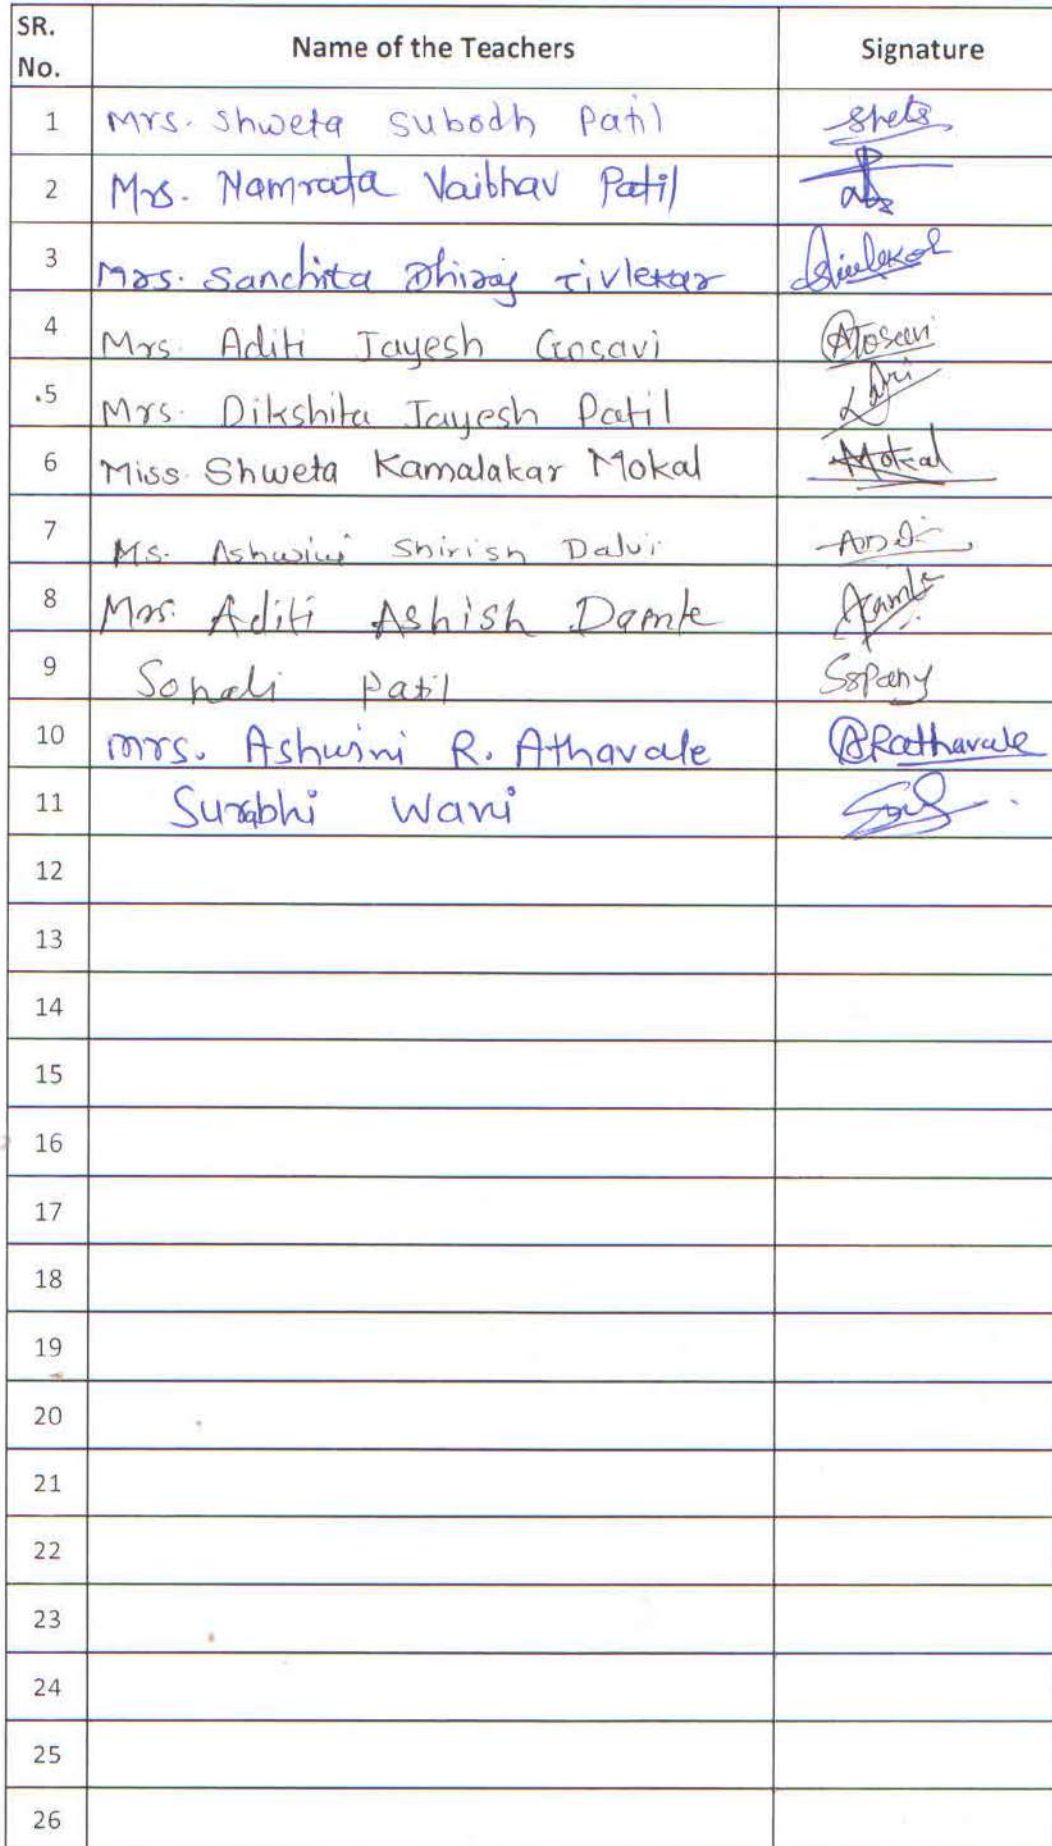 SR. No. Name of the Teachers Signature
1 Mrs. Shweta Subodh Patil
2 Mrs. Namrata Vaibhav Patil
3 Mrs. Sanchita Dhiraj Tivlekar
4 Mrs. Aditi Jayesh Gosavi
5 Mrs. Dikshita Jayesh Patil
6 Miss. Shweta Kamalakar Mokal Mokal
7 Ms. Ashwini Shirish Dalvi
8 Mrs. Aditi Ashish Damle
9 Sonali Patil
10 Mrs. Ashwini R. Athavale ARathavale
11 Surabhi Wani
12
13
14
15
16
17
18
19
20
21
22
23
24
25
26